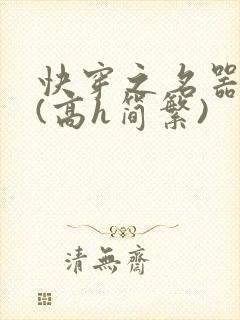 快穿之名器
(高h简繁)
清無齋